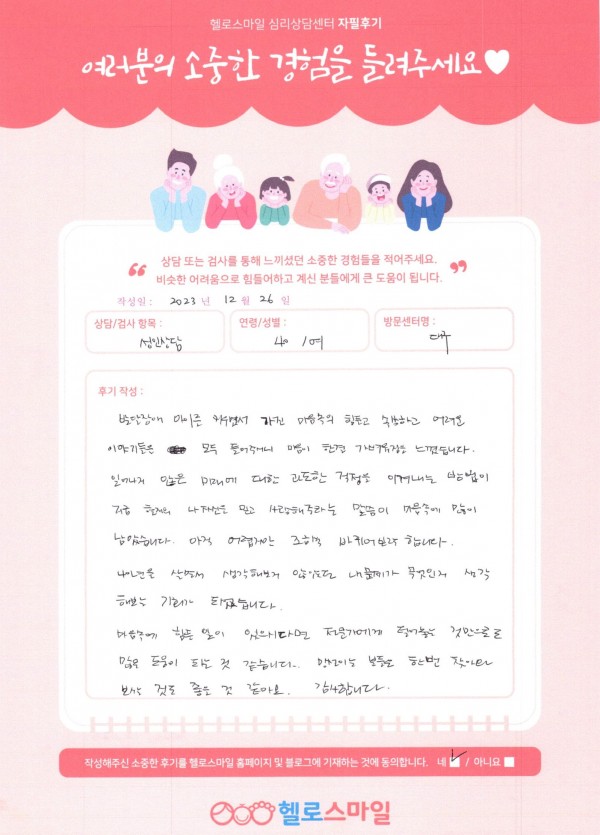 헬로스마일 심리상담센터 자필후기
여러분의 소중한 경험을 들려주세요♥
상담 또는 검사를 통해 느끼셨던 소중한 경험들을 적어주세요.
“ 비슷한 어려움으로 힘들어하고 계신 분들에게 큰 도움이 됩니다. ”
작성일 : 2023 년 12 월 26 일
상담/검사 항목 : 성인상담
연령/성별 : 40 / 여
방문센터명 : 대구
후기 작성 :
발달장애 아이를 키우면서 가진 마음속의 힘들고 속상하고 어려운
이야기들은 모두 들어주시니 마음이 한결 가벼워짐을 느꼈습니다.
일어나지 않은 미래에 대한 과도한 걱정을 이겨내는 방법이
지금 현재의 나 자신을 믿고 사랑해주라는 말씀이 마음속에 많이
남았습니다. 아직 어렵지만 조금씩 바뀌어보려 합니다.
40년을 살면서 생각해보지 않았던 내 문제가 무엇인지 생각
해보는 기회가 되었습니다.
마음속에 힘든 일이 있으시다면 전문가에게 털어놓는 것만으로도
많은 도움이 되는 것 같습니다. 망설이는 분들도 한번 찾아와
보시는 것도 좋은 것 같아요. 감사합니다.
작성해주신 소중한 후기를 헬로스마일 홈페이지 및 블로그에 기재하는 것에 동의합니다. 네 ✓ / 아니요
헬로스마일